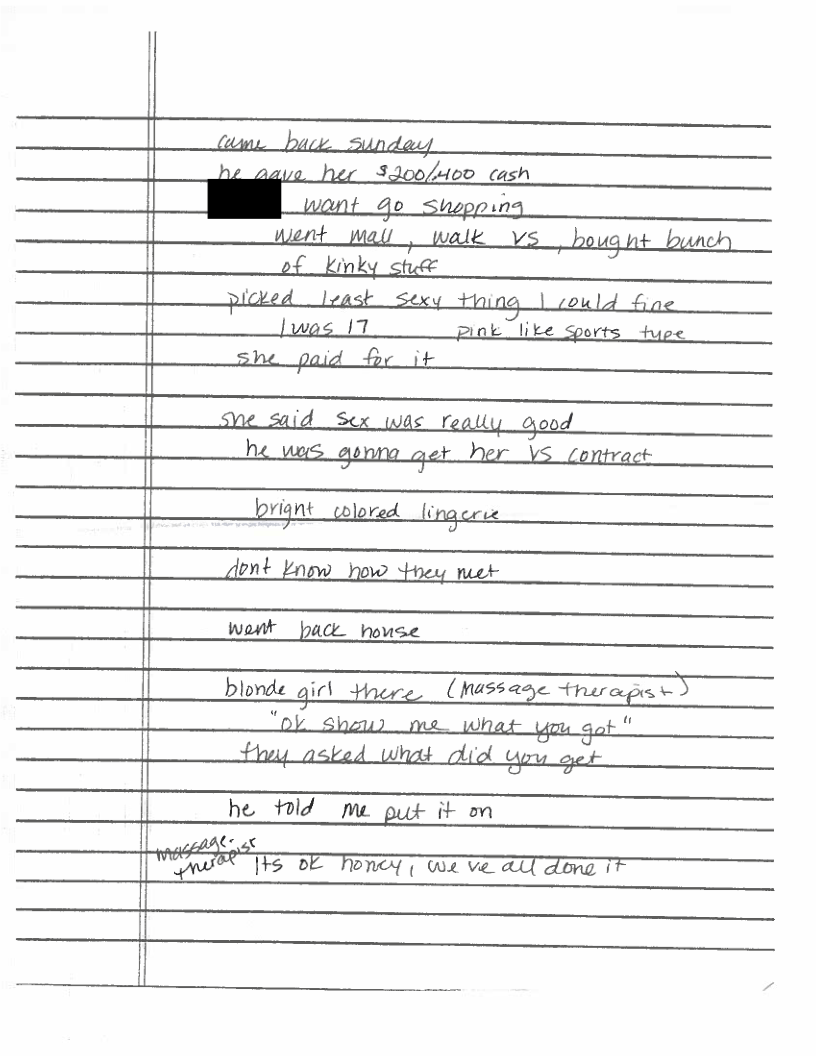 came back sunday
he gave her $200/400 cash
want go shopping
went mall, walk VS, bought bunch
of kinky stuff
picked least sexy thing I could fine
I was 17 pink like sports type
she paid for it
she said sex was really good
he was gonna get her VS contract
bright colored lingerie
dont know how they met
went back house
blonde girl there (massage therapist)
"ok show me what you got"
they asked what did you get
he told me put it on
massage-
therapist Its ok honey, we ve all done it